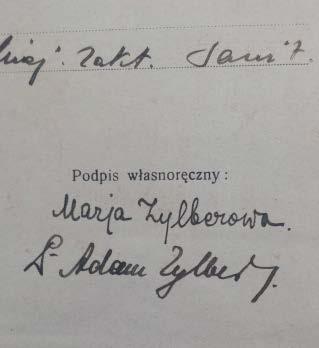 Zakt. Sanit.
Podpis własnoręczny:
Marja Zylberowa.
Dr Adam Zylber